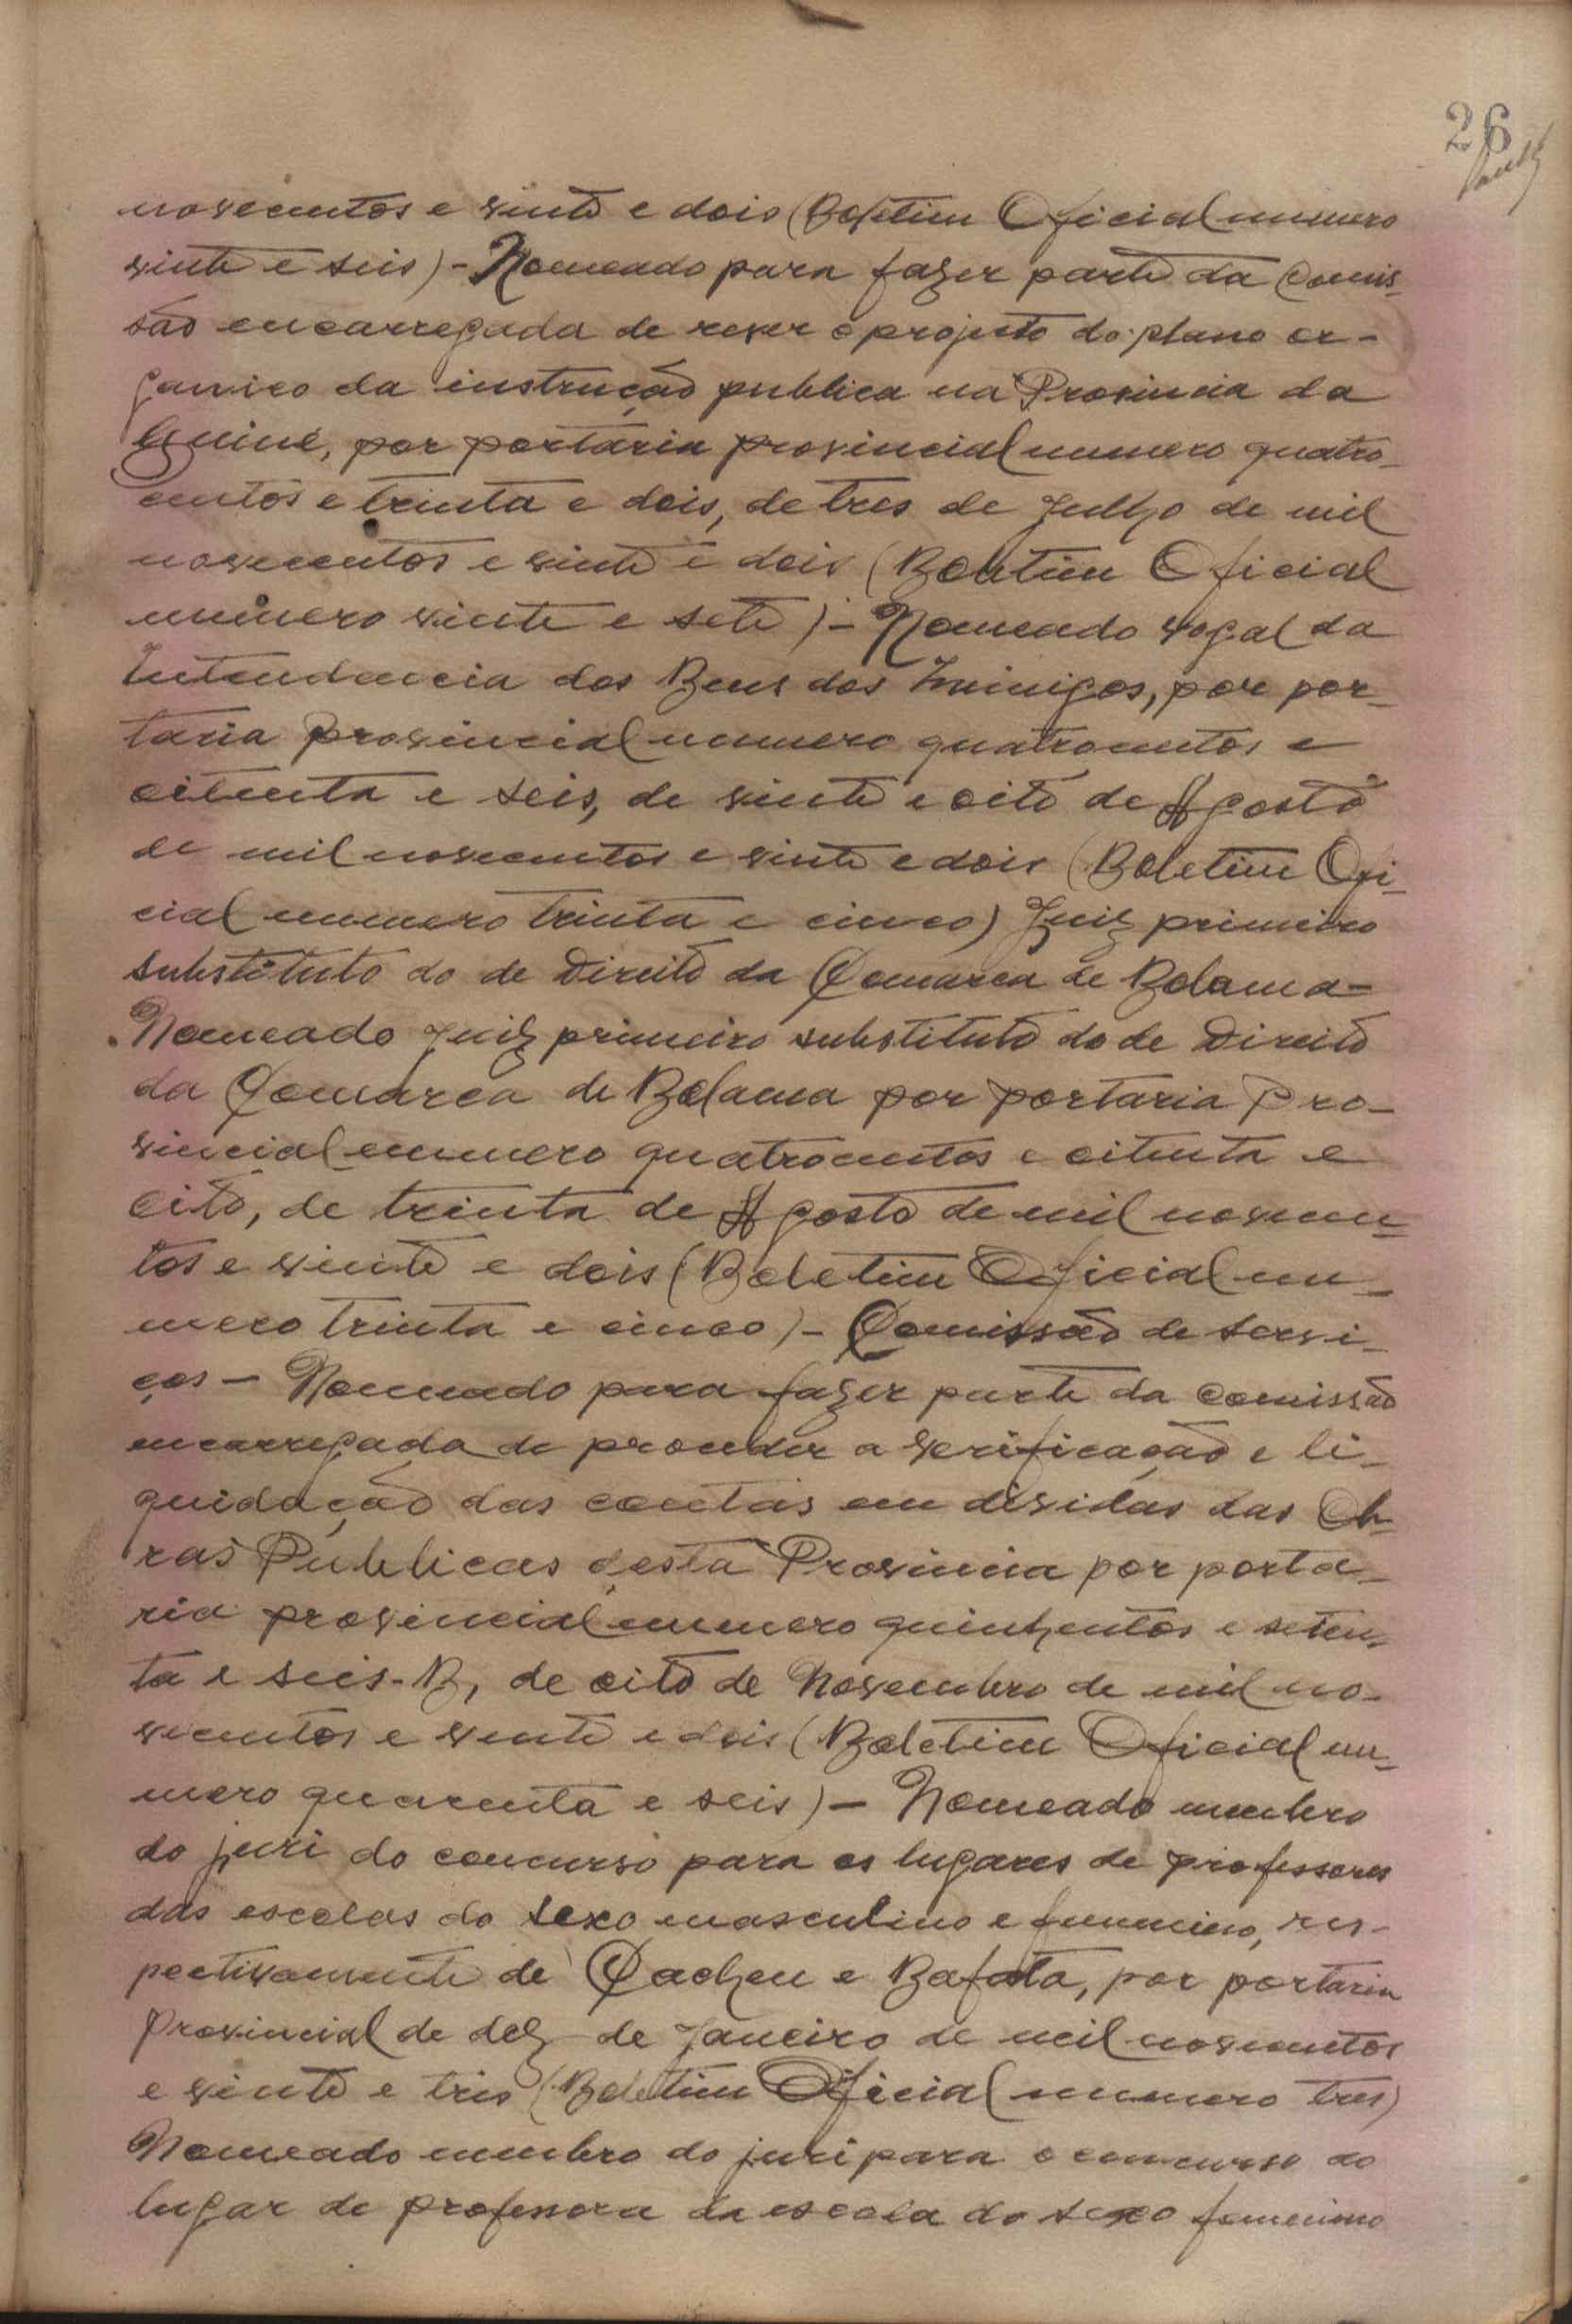 26
novecentos e vinte e dois (Boletim Oficial numero
vinte e seis) - Nomeado para fazer parte da Comis-
são encarregada de rever o projecto do plano or-
ganico da instrução publica na Provincia da
Guiné, por portaria provincial numero quatro-
centos e trinta e dois, de tres de Julho de mil
novecentos e vinte e dois (Boletim Oficial
numero vinte e sete) - Nomeado vogal da
Intendencia dos Bens dos Inimigos, por por-
taria provincial numero quatrocentos e
oitenta e seis, de vinte e oito de Agosto
de mil novecentos e vinte e dois (Boletim Ofi-
cial numero trinta e cinco) Juiz primeiro
substituto do de Direito da Comarca de Bolama -
Nomeado Juiz primeiro substituto do de Direito
da Comarca de Bolama por portaria Pro-
vincial numero quatrocentos e oitenta e
oito, de trinta de Agosto de mil novecen-
tos e vinte e dois (Boletim Oficial nu-
mero trinta e cinco) - Comissão de servi-
ços - Nomeado para fazer parte da Comissão
encarregada de proceder a verificação e li-
quidação das contas em dividas das Ob-
ras Publicas desta Provincia por porta-
ria provincial numero quinhentos e seten-
ta e seis-B, de oito de Novembro de mil no-
vecentos e vinte e dois (Boletim Oficial nu-
mero quarenta e seis) - Nomeado membro
do juri do concurso para os lugares de professores
das escolas do sexo masculino e feminino, res-
pectivamente de Cacheu e Bafata, por portaria
Provincial de dez de Janeiro de mil novecentos
e vinte e tres (Boletim Oficial numero tres)
Nomeado membro do juri para o concurso do
lugar de professora da escola do sexo femenino